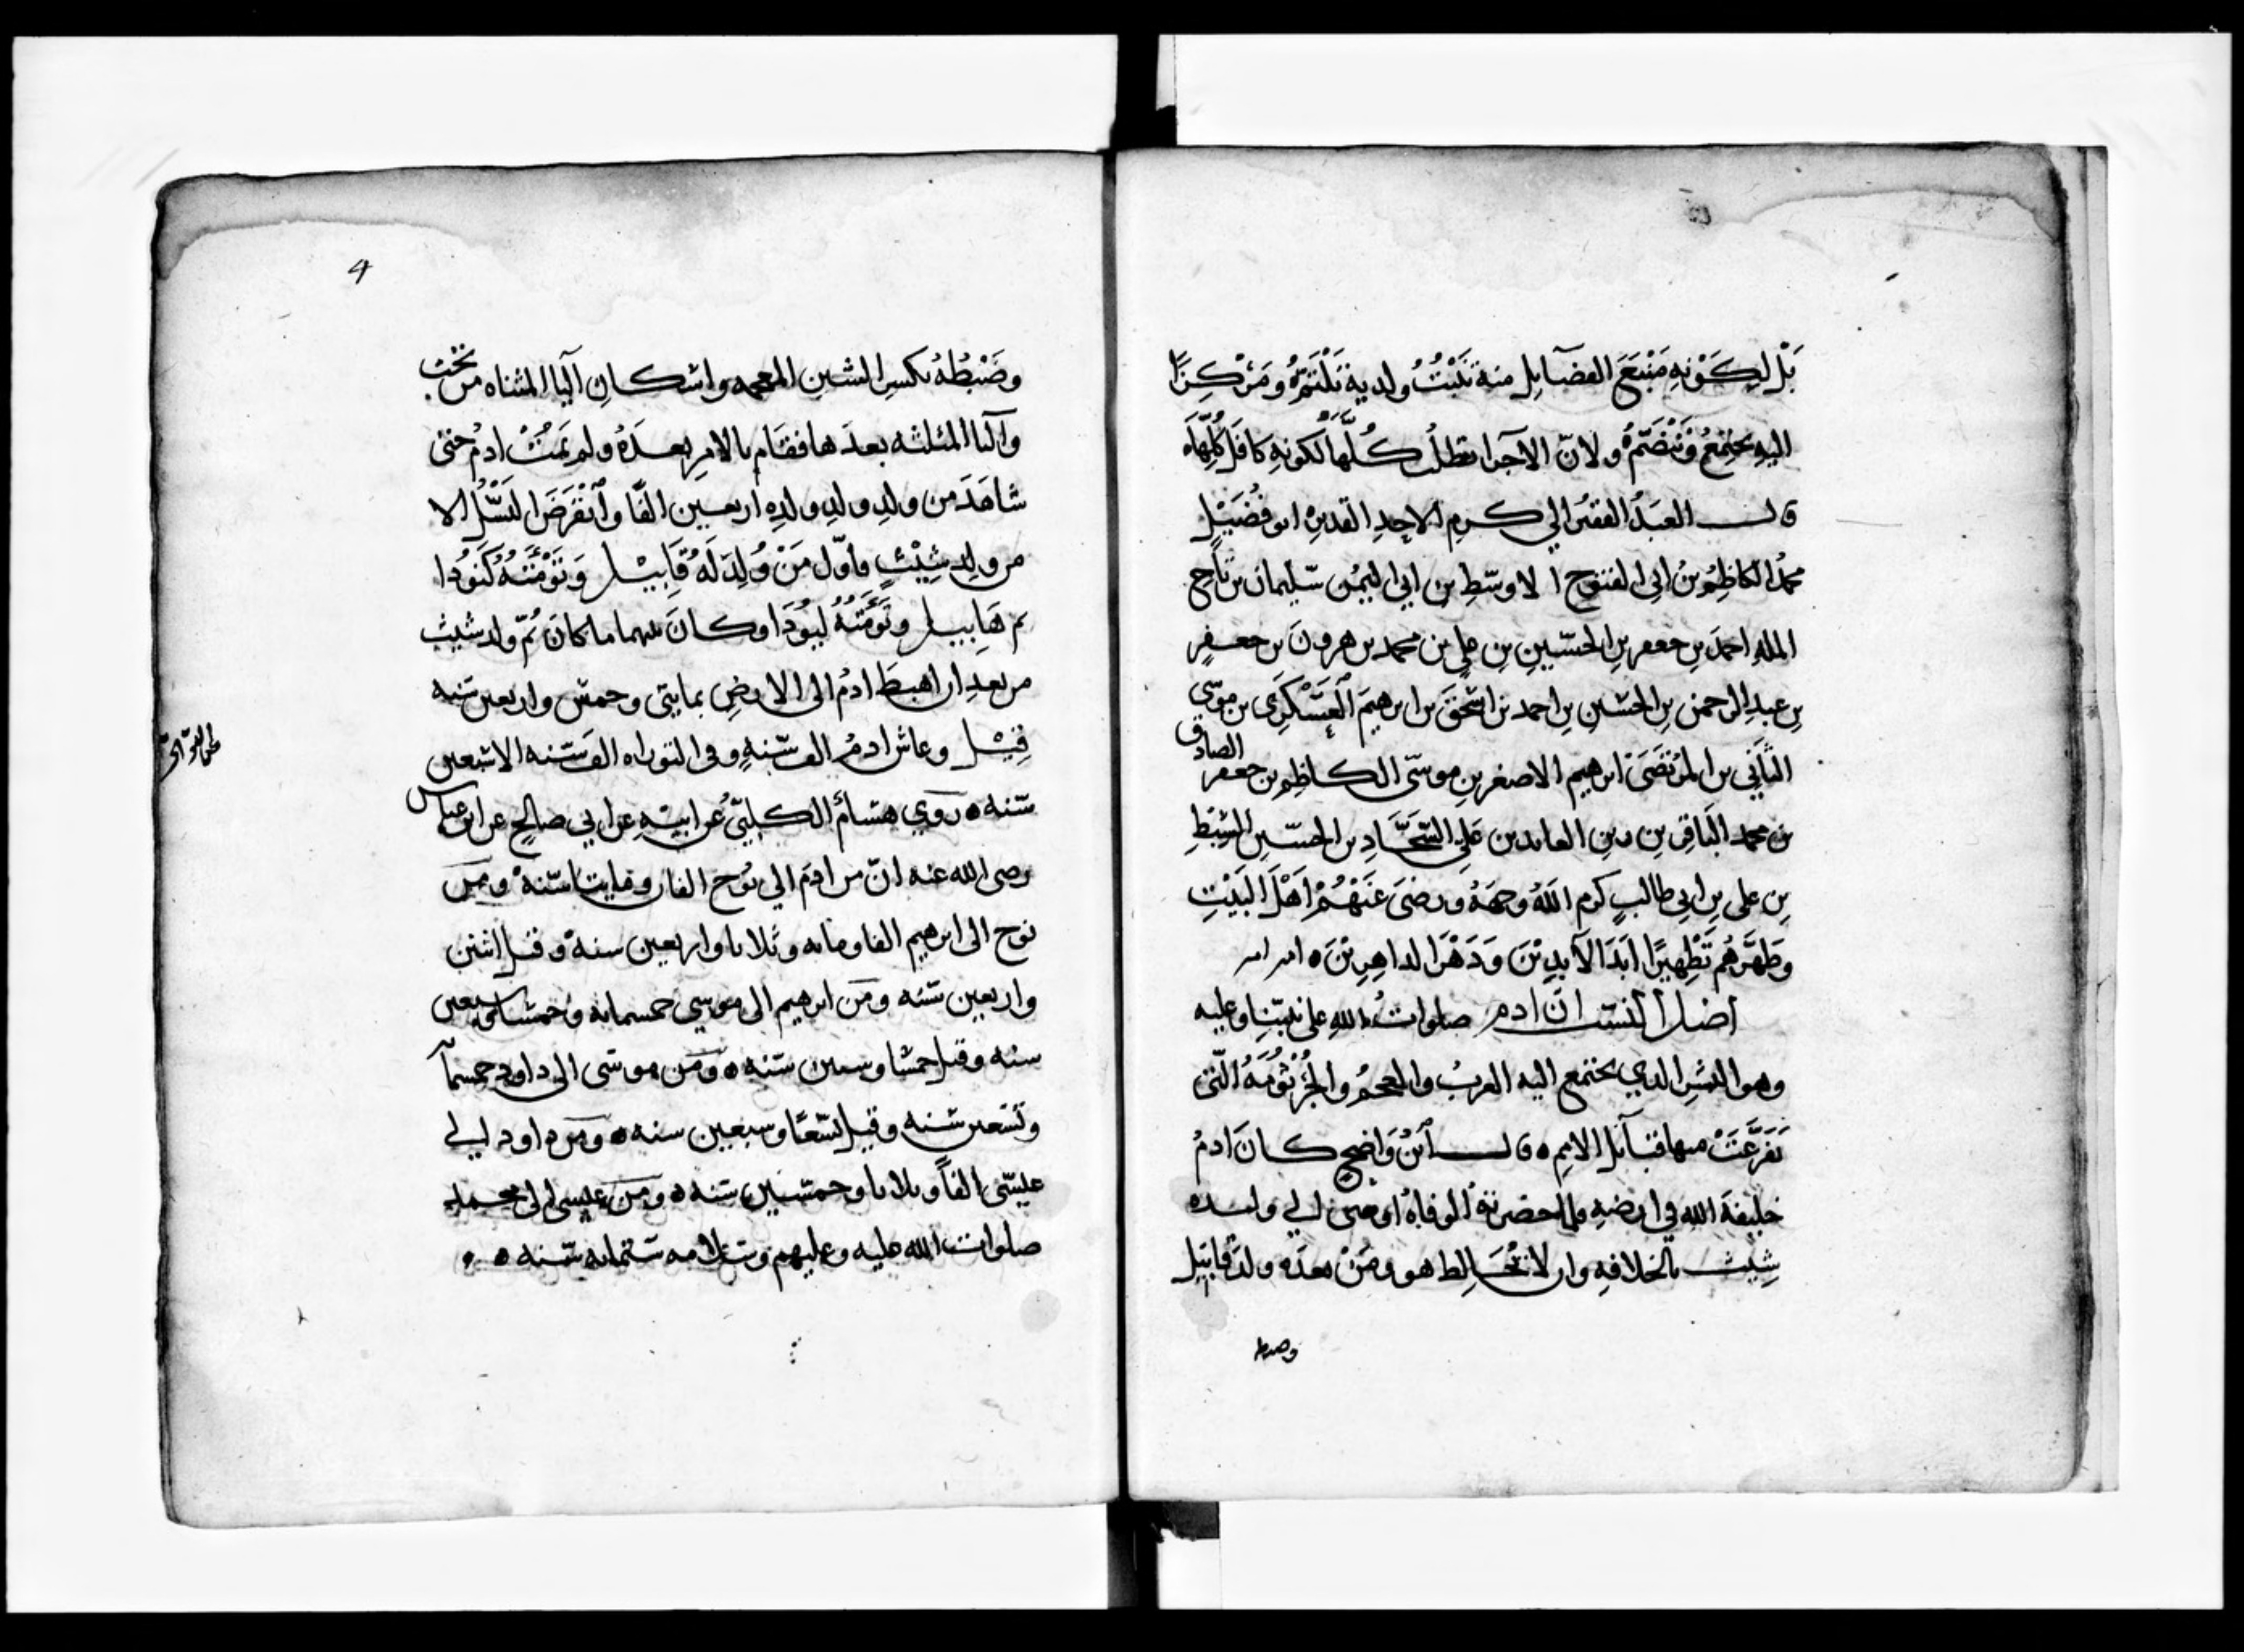 بَلْ لِكَوْنِهِ مَنْبَعَ الفضآيل منه تَنْبُتُ ولديه تَلْتَمُّ وَمَرْكِزًا
اليهِ تجتمعُ وَتَنْضَمُّ ولانّ الاجزا تطلبُ كُلَّهَا لكونهِ كافل كُلِّهَا
قال العَبدُ الفقير الي كرمِ الاحدِ القديرِ ابو فُضَيْلٍ
محمدُ الكاظِمُ بنُ ابى الفتوح الاوسَطِ بن ابي اليُمْنِ سليمان بن تاج
المله احمدَ بنِ جعفر بنِ الحسَينِ بنِ علي بن محمد بن هرونَ بن جعفرِ
بنِ عبدِ الرحمن بنِ الحسَينِ بنِ احمد بن اسْحَقَ بن ابرهيمَ العَسْكَرِى بن موسَى
الثَّاني بن المُرْتَضَى ابرهيم الاصغر بنِ موسَى الكاظِمِ بن جعفر الصادق
بن محمد البَاقِر بن زين العابدين عَلِيِ السَّجَّادِ بن الحسَينِ السِّبْطِ
بنِ علي بنِ ابي طالبٍ كرم اللهُ وجهَهُ ورضىَ عَنْهُمْ اَهْلَ البَيْتِ
وطَهَّرَهُم تَطْهِيرًا ابَدَ الآبِدِيْنَ وَدَهْرَ الداهِرِيْنَ ه امر امر
اصْل النسَب انّ ادم صلواتُ اللهِ على نبيّنا وعليه
وهو البشرِ الذي يجتمع اليه العربُ والعجمُ والجُرْثُومَةُ الّتى
تَفَرَّعَتْ منها قبآيل الامم ه قال ابْنُ وَاضِحٍ كانَ ادمُ
خليفةَ الله في ارضهِ فلما حضرتهُ الوفاةُ اوصى الي ولده
شِيث بالخلافهِ وان لا تُخَالِط هو ومَنْ بعدَه ولدَ قابيل
وضبطه
4
وضَبْطُهُ بكسرِ الشين المعجمه واسكانِ اليا المثناه من تحت
والثا المثلثه بعدَها فقَام بالامرِ بعدَهُ ولم يَمُتْ ادمُ حتى
شاهَدَ من ولدِ ولدِ ولدِهِ اربعين الفًا وانْقَرَضَ النَسْلُ الا
من ولد شِيْثٍ فاوّل مَنْ وُلِدَ لَهُ قَابِيْل وَتَوْمَتُهُ كَنَوُدا
ثم هَابيل وتَوْمَتُهُ لَيَوُدَا وكانَ منهما ما كانَ ثُمّ ولد شيث
من بعدِ ان اهبطَ ادمُ الى الارضِ بمايتى وخمس واربعين سَنه
قِيْل وعاش ادمُ الف سَنهٍ وفى التوراه الف سَنه الا سَبعين
سَنه ه روي هشامُ الكلبيّ عن ابيْهِ عن ابي صالحٍ عن ابن عباس
رضى الله عنه انّ من ادمَ الي نُوح الفان ومايتا سَنهً ومن
نوح الى ابرهيم الفا ومايه وثلاثا واربعين سنهً وقيل اثنين
واربعين سَنه ومن ابرهيم الى موسى خمسمايه وخمسًا وسَبعين
سنه وقيل خمسًا وستين سَنه ه ومن موسَى الى داود خمسمآ
وتسْعين سَنه وقيل تسْعًا وسبعين سنه ه ومن داود الي
عيسَى الفًا وثلاثا وخمسَين سَنه ه ومن عيسى الى محمد
صلوات الله عليه وعليهم وسَلامه سَتمايه سَنه ه